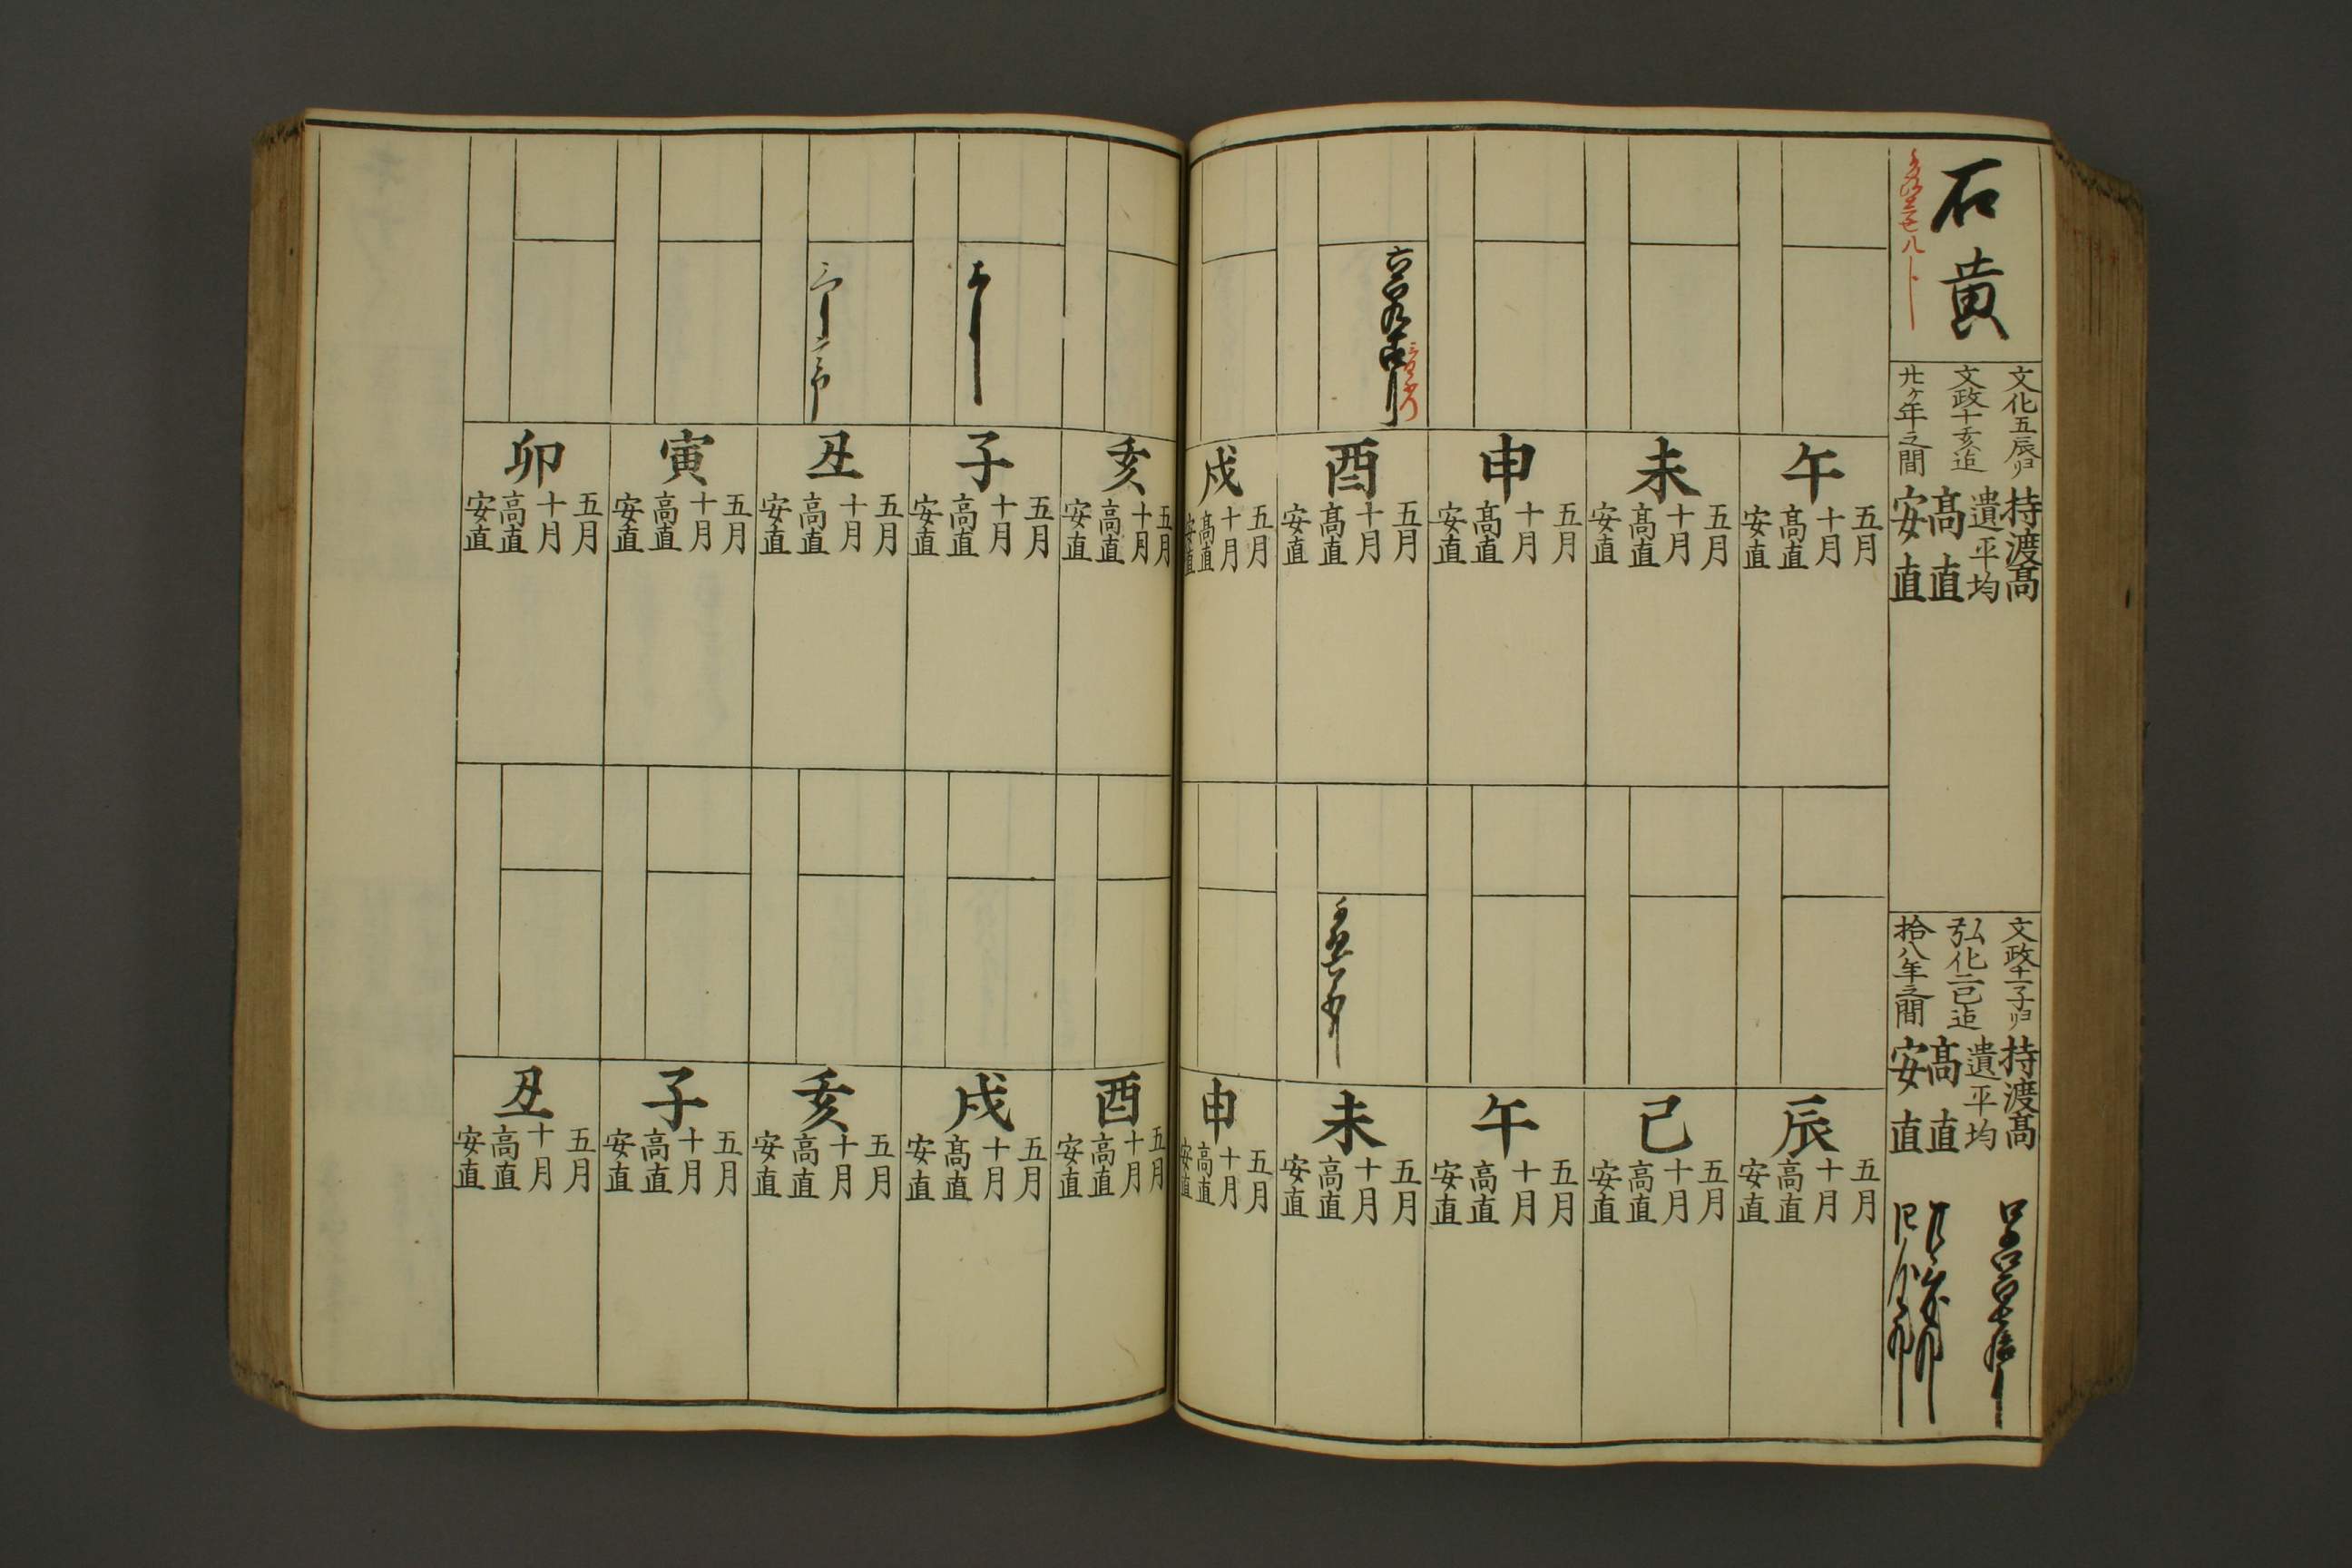 石黄
文化五辰ヨリ
文政十亥迠
廿ケ年之間
持渡髙
遺平均
髙直
安直
文政十一子ヨリ
弘化二巳迠
拾八年之間
持渡髙
遺平均
髙直
安直
午
五月
十月
髙直
安直
未
五月
十月
髙直
安直
申
五月
十月
髙直
安直
酉
五月
十月
髙直
安直
戌
五月
十月
髙直
安直
辰
五月
十月
髙直
安直
巳
五月
十月
髙直
安直
午
五月
十月
髙直
安直
未
五月
十月
髙直
安直
申
五月
十月
髙直
安直
亥
五月
十月
髙直
安直
子
五月
十月
髙直
安直
丑
五月
十月
髙直
安直
寅
五月
十月
髙直
安直
卯
五月
十月
髙直
安直
酉
五月
十月
髙直
安直
戌
五月
十月
髙直
安直
亥
五月
十月
髙直
安直
子
五月
十月
髙直
安直
丑
五月
十月
髙直
安直